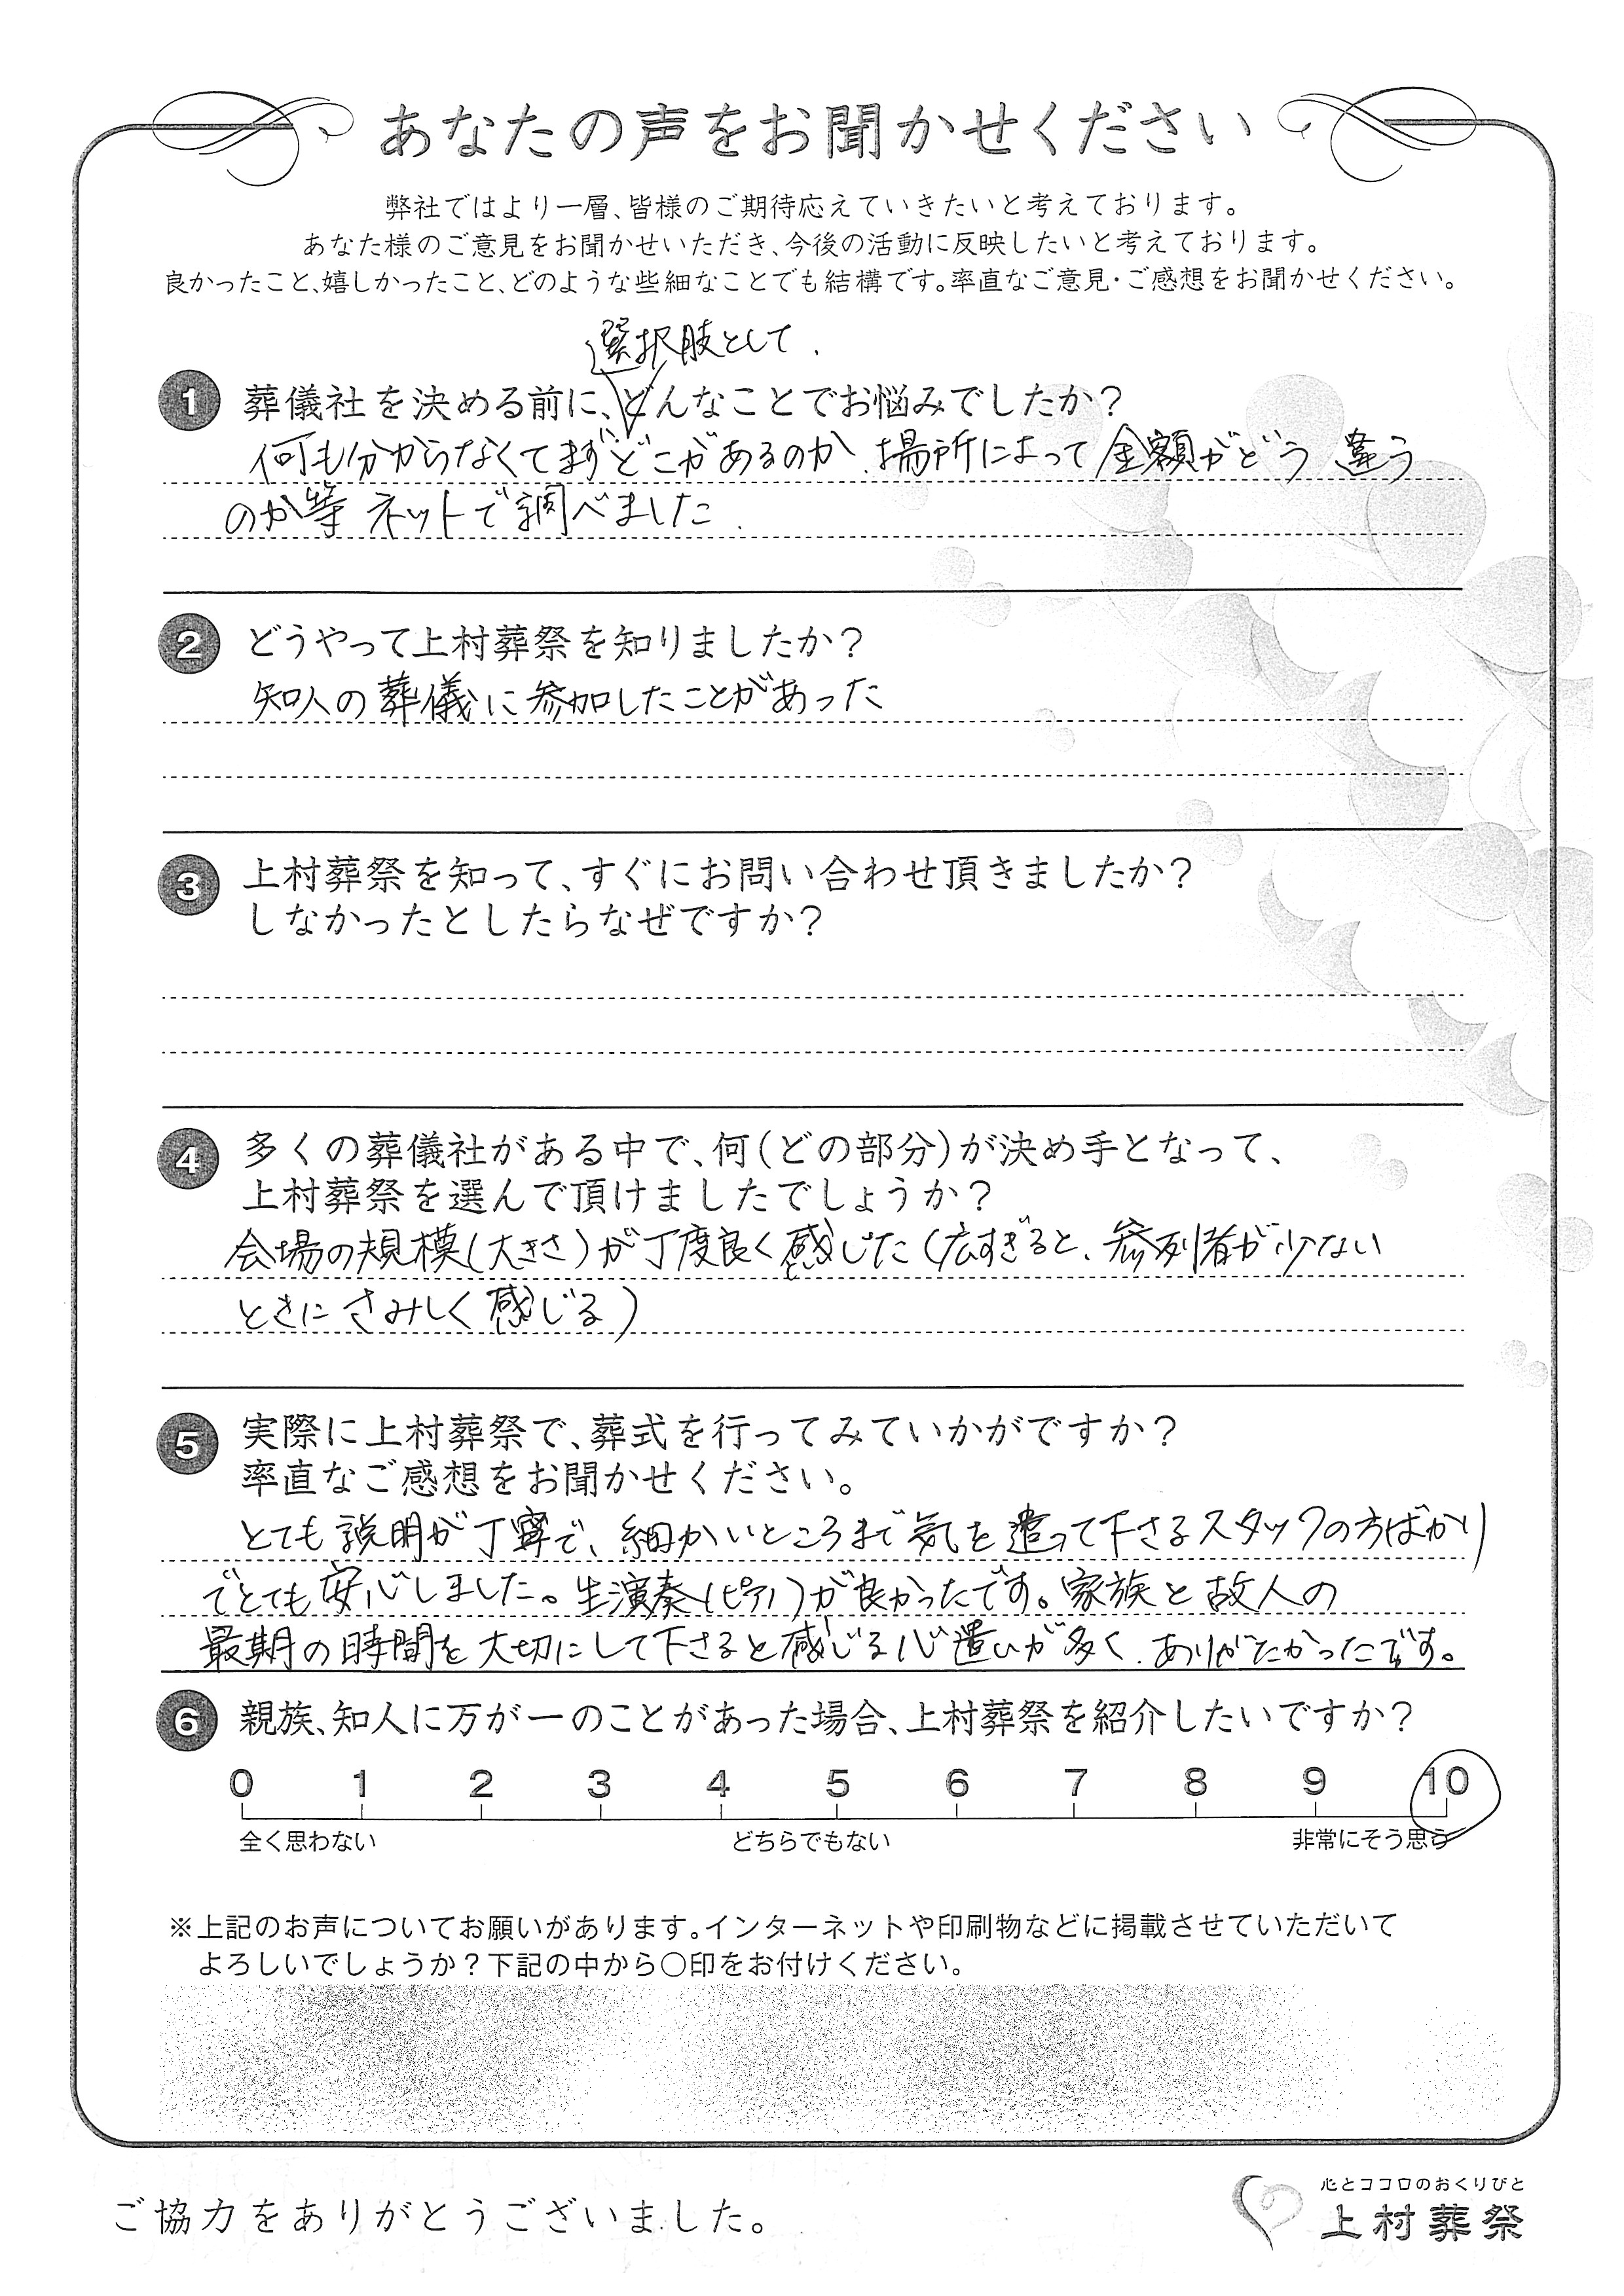 あなたの声をお聞かせください
弊社ではより一層、皆様のご期待応えていきたいと考えております。
あなた様のご意見をお聞かせいただき、今後の活動に反映したいと考えております。
良かったこと、嬉しかったこと、どのような些細なことでも結構です。率直なご意見・ご感想をお聞かせください。
選択肢として.
1 葬儀社を決める前に、どんなことでお悩みでしたか?
何も分からなくてまずどこがあるのか、場所によって金額がどう違う
のか等 ネットで調べました.
2 どうやって上村葬祭を知りましたか?
知人の葬儀に参加したことがあった
3 上村葬祭を知って、すぐにお問い合わせ頂きましたか?
しなかったとしたらなぜですか?
4 多くの葬儀社がある中で、何(どの部分)が決め手となって、
上村葬祭を選んで頂けましたでしょうか?
会場の規模(大きさ)が丁度良く感じた(広すぎると、参列者が少ない
ときにさみしく感じる)
5 実際に上村葬祭で、葬式を行ってみていかがですか?
率直なご感想をお聞かせください。
とても説明が丁寧で、細かいところまで気を遣って下さるスタッフの方ばかり
でとても安心しました。生演奏(ピアノ)が良かったです。家族と故人の
最期の時間を大切にして下さると感じる心遣いが多く、ありがたかったです。
6 親族、知人に万が一のことがあった場合、上村葬祭を紹介したいですか?
0 1 2 3 4 5 6 7 8 9 10
全く思わない どちらでもない 非常にそう思う
※上記のお声についてお願いがあります。インターネットや印刷物などに掲載させていただいて
よろしいでしょうか?下記の中から○印をお付けください。
ご協力をありがとうございました。
心とココロのおくりびと
上村葬祭